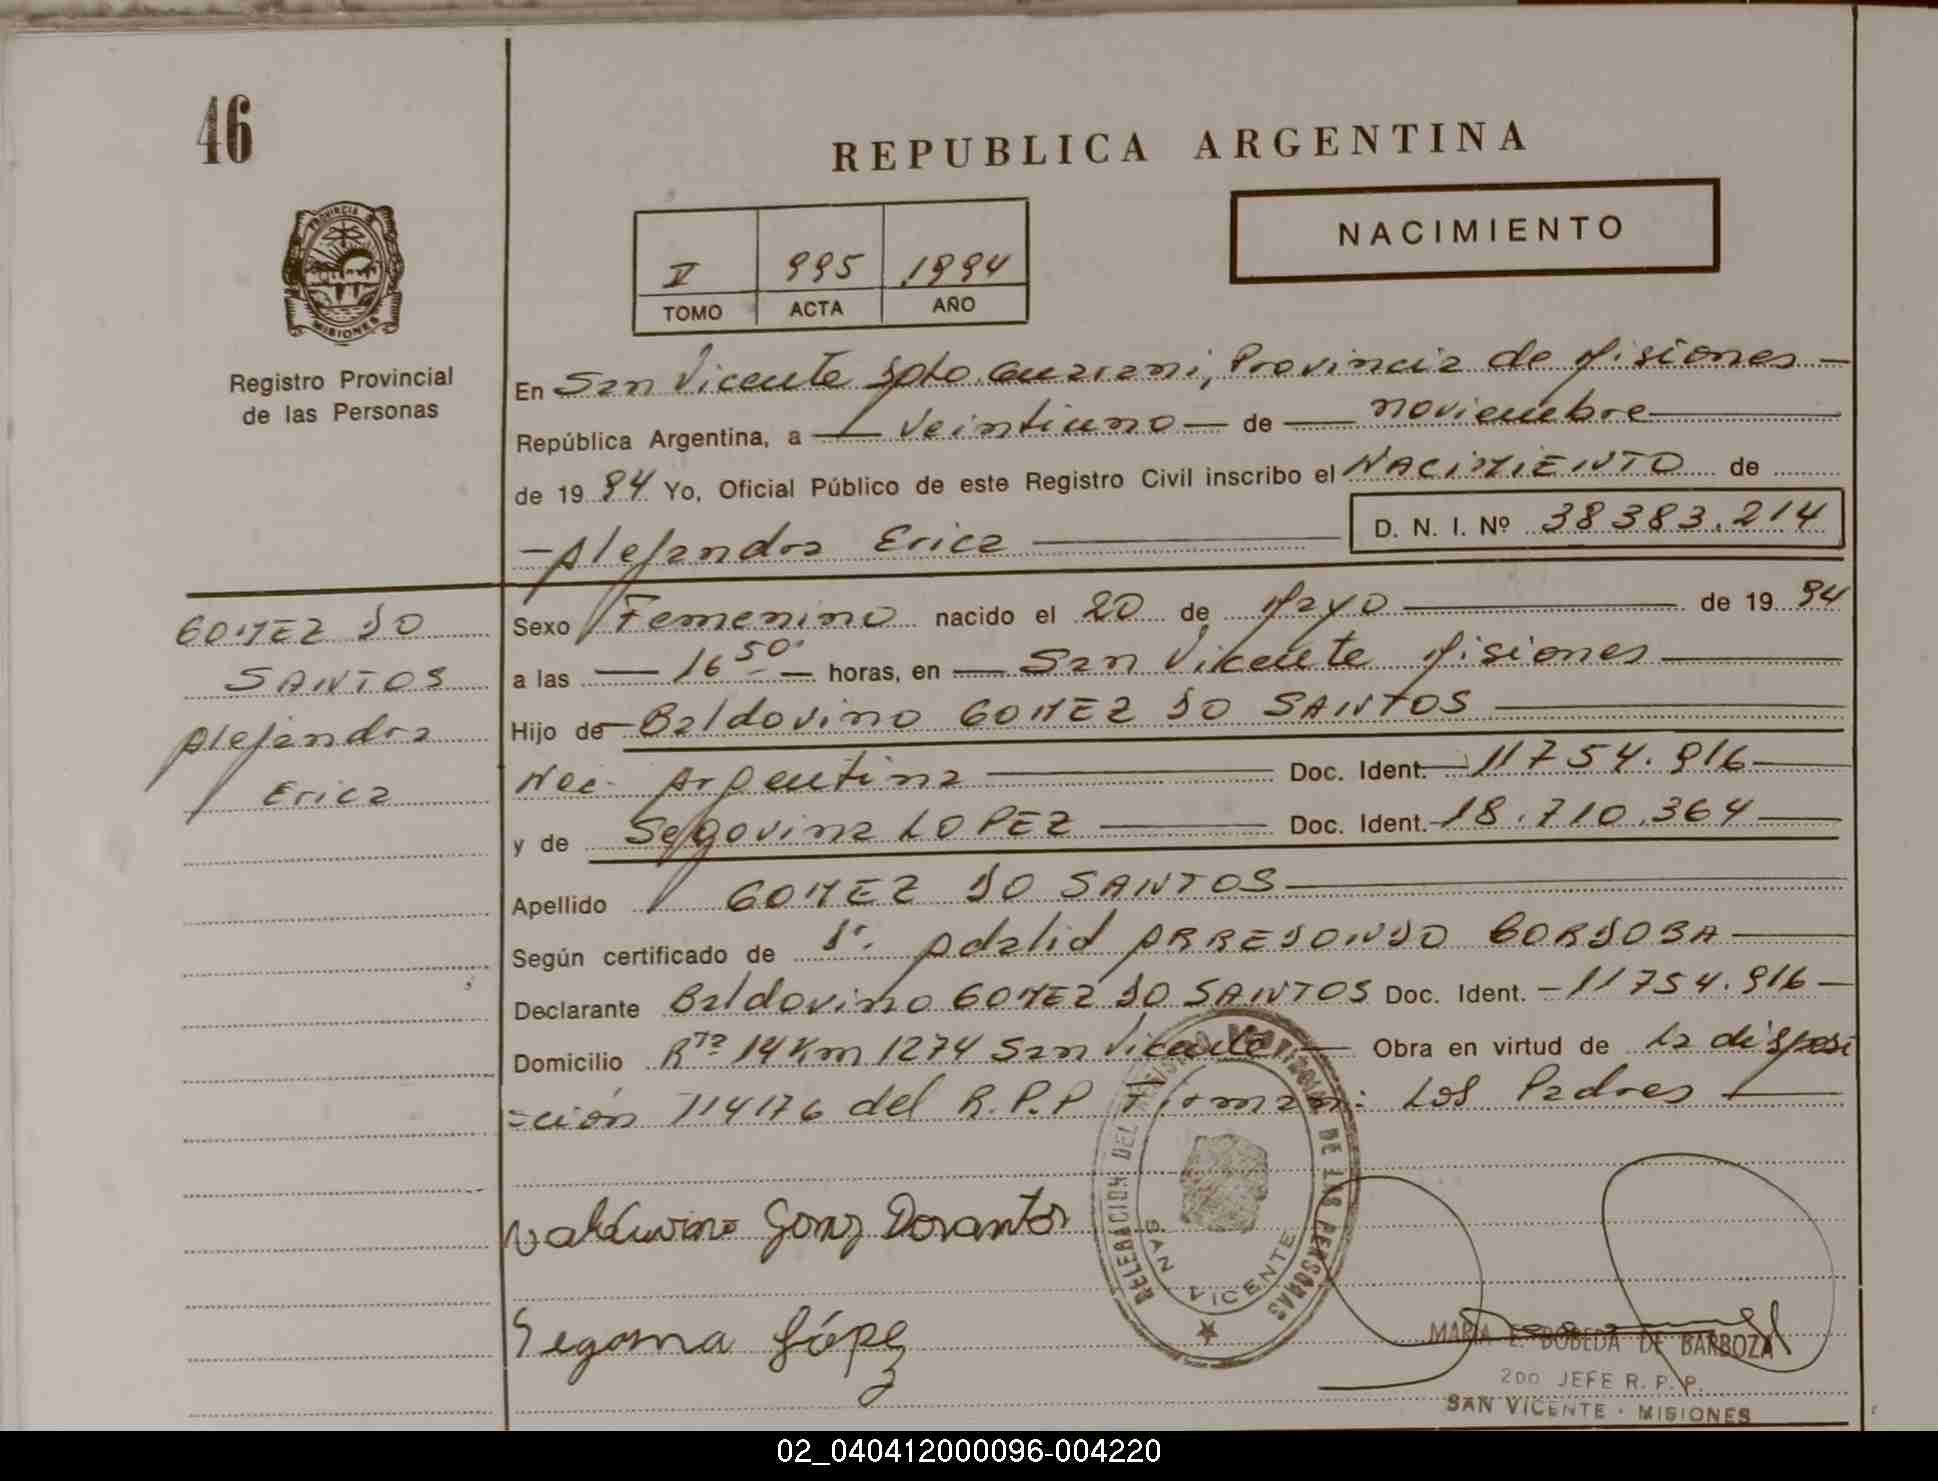 46
REPUBLICA ARGENTINA
NACIMIENTO
PROVINCIA DE
MISIONES
Registro Provincial
de las Personas
V 995 1994
TOMO ACTA AÑO
En San Vicente Dpto. Guarani, Provincia de Misiones
República Argentina, a veintiuno de noviembre
de 1994 Yo, Oficial Público de este Registro Civil inscribo el NACIMIENTO de
D. N. I. Nº 38383.214
Alejandra Erica
GOMEZ DO
SANTOS
Alejandra
Erica
Sexo Femenino nacido el 20 de Mayo de 1994
a las 16 50 horas, en San Vicente Misiones
Hijo de Baldovino GOMEZ DO SANTOS
Nac. Argentina Doc. Ident. 11754.916
y de Segovina LOPEZ Doc. Ident. 18.710.364
Apellido GOMEZ DO SANTOS
Según certificado de Dr. Adalid ARREDONDO CORDOBA
Declarante Baldovino GOMEZ DO SANTOS Doc. Ident. 11754.916
Domicilio Rta 14 Km 1274 San Vicente Obra en virtud de la disposi
=ción 114176 del R.P.P Firman: Los Padres
DE LAS PERSONAS
SAN VICENTE
López
MARIA E. BOBEDA DE BARBOZA
2DO JEFE R. P. P.
SAN VICENTE - MISIONES
02_040412000096-004220